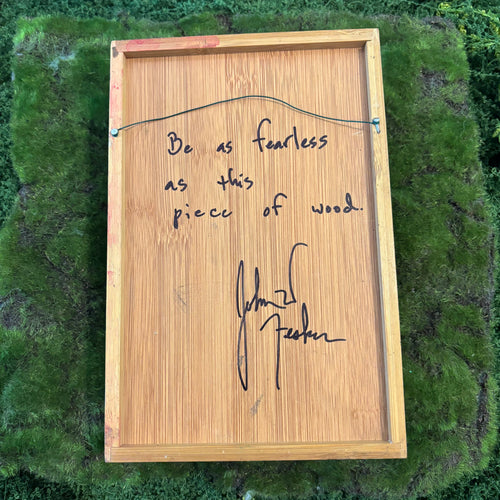 Be as fearless
as this
piece of wood.
John W